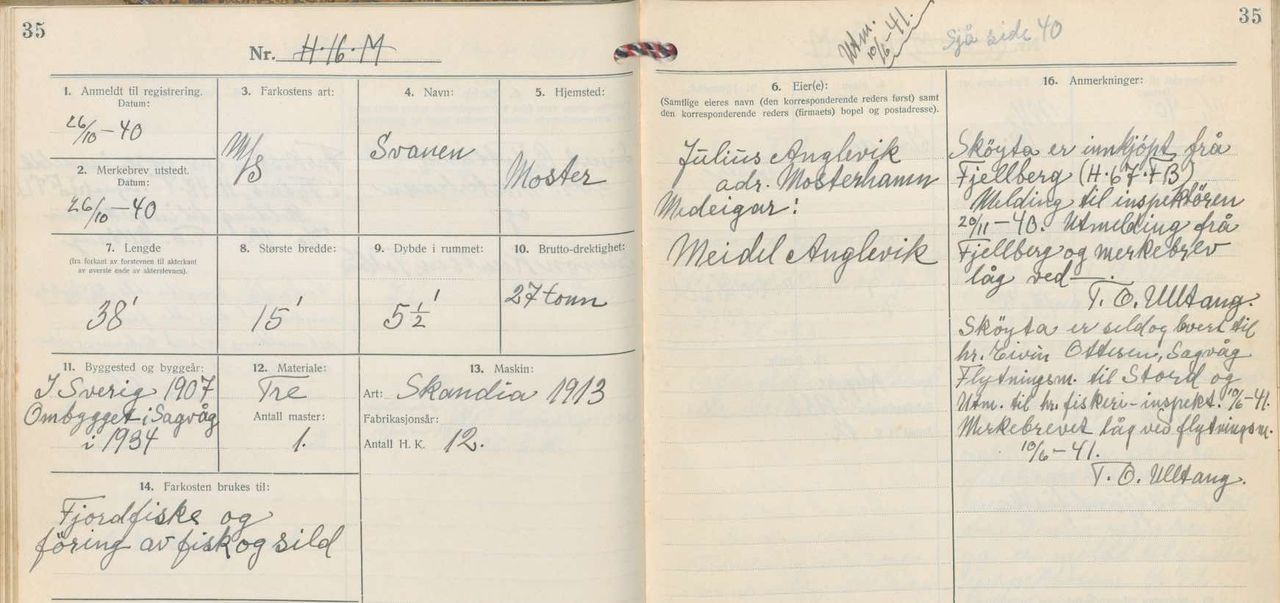 35
Nr. H.16.M
1. Anmeldt til registrering.
Datum:
26/10 – 40
2. Merkebrev utstedt.
Datum:
26/10 – 40
3. Farkostens art:
M/S
4. Navn:
Svanen
5. Hjemsted:
Moster
7. Lengde
(fra forkant av forstevnen til akterkant
av øverste ende av akterstevnen).
38'
8. Største bredde:
15'
9. Dybde i rummet:
5 1/2'
10. Brutto-drektighet:
27 tonn
11. Byggested og byggeår:
I Sverig 1907
Ombygget i Sagvåg
i 1934
12. Materiale:
Tre
Antall master:
1.
13. Maskin:
Art: Skandia 1913
Fabrikasjonsår:
Antall H. K. 12.
14. Farkosten brukes til:
Fjordfiske og
föring av fisk og sild
35
Utm.
10/6 – 41.
Sjå side 40
6. Eier(e):
(Samtlige eieres navn (den korresponderende reders først) samt
den korresponderende reders (firmaets) bopel og postadresse).
Julius Anglevik
adr. Mosterhamn
Medeigar:
Meidel Anglevik
16. Anmerkninger:
Sköyta er innkjöpt frå
Fjellberg (H.67.FB)
Melding til inspektören
20/11 – 40. Utmelding frå
Fjellberg og merkebrev
låg ved —.
T. O. Ulltang.
Sköyta er seld og levert til
hr. Eivin Ottesen, Sagvåg
Flytningsm. til Stord og
Utm. til hr. fiskeri-inspekt. 10/6 – 41.
Merkebrevet låg ved flytningsm.
10/6 – 41.
T. O. Ulltang.